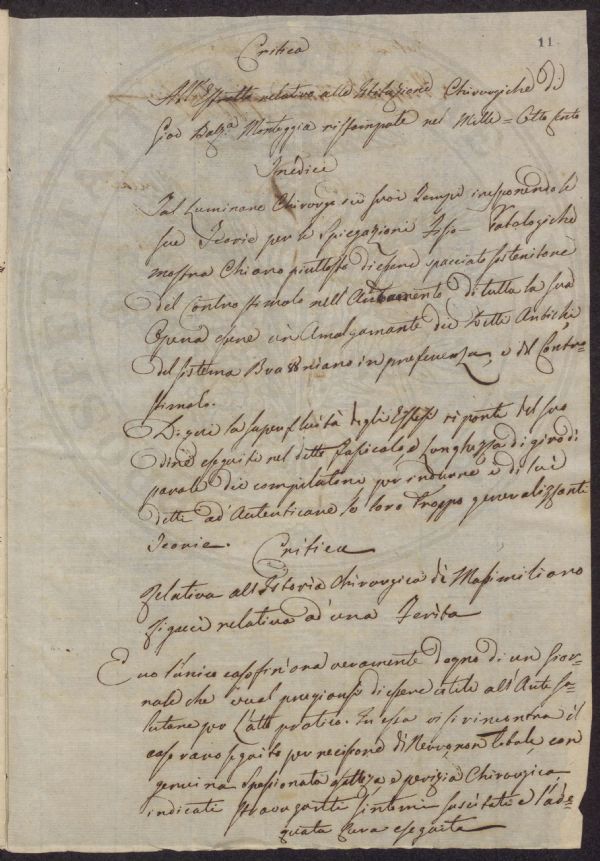 11
Critica
All' Estratto relativo alle Istituzioni Chirurgiche di
Gio: Batt.a Monteggia ristampate nel Mille = Otto cento
Tredici
Tal Luminare Chirurgo de suoi tempi
sue Teorie per le Spiegazioni Fisio = Patologiche
mostra Chiaro piuttosto di essere spacciato sostenitore
del Controstimolo nell' di tutta la sua
Opera essere un Amalgamante dei Detti Antichi
del sistema Bra Uniano in preferenza, e del Contro=
stimolo.
la superfluità degli riporti del suo
dire eseguiti nel detto Fascicolo e Lunghezza di giro di
parole dei compilatori per indurre i di lui
detti ad' Autenticare le loro troppo generalizzante
Teorie.
Critica
Relativa all' Istoria Chirurgica di Massimiliano
Rigacci relativa ad' una Ferita
E vo l'unico caso fin' ora veramente degno di un Gior=
nale che vual pregiarsi di essere utile all' Arte Sa=
lutare per l'atto pratico. In essa vi si rincontra il
caso raro seguito per recisione di Nervo non totale con
genuina Spassionata e perizia Chirurgica
indicati stravaganti Sintomi suscitati e l'ade=
quata Cura eseguita